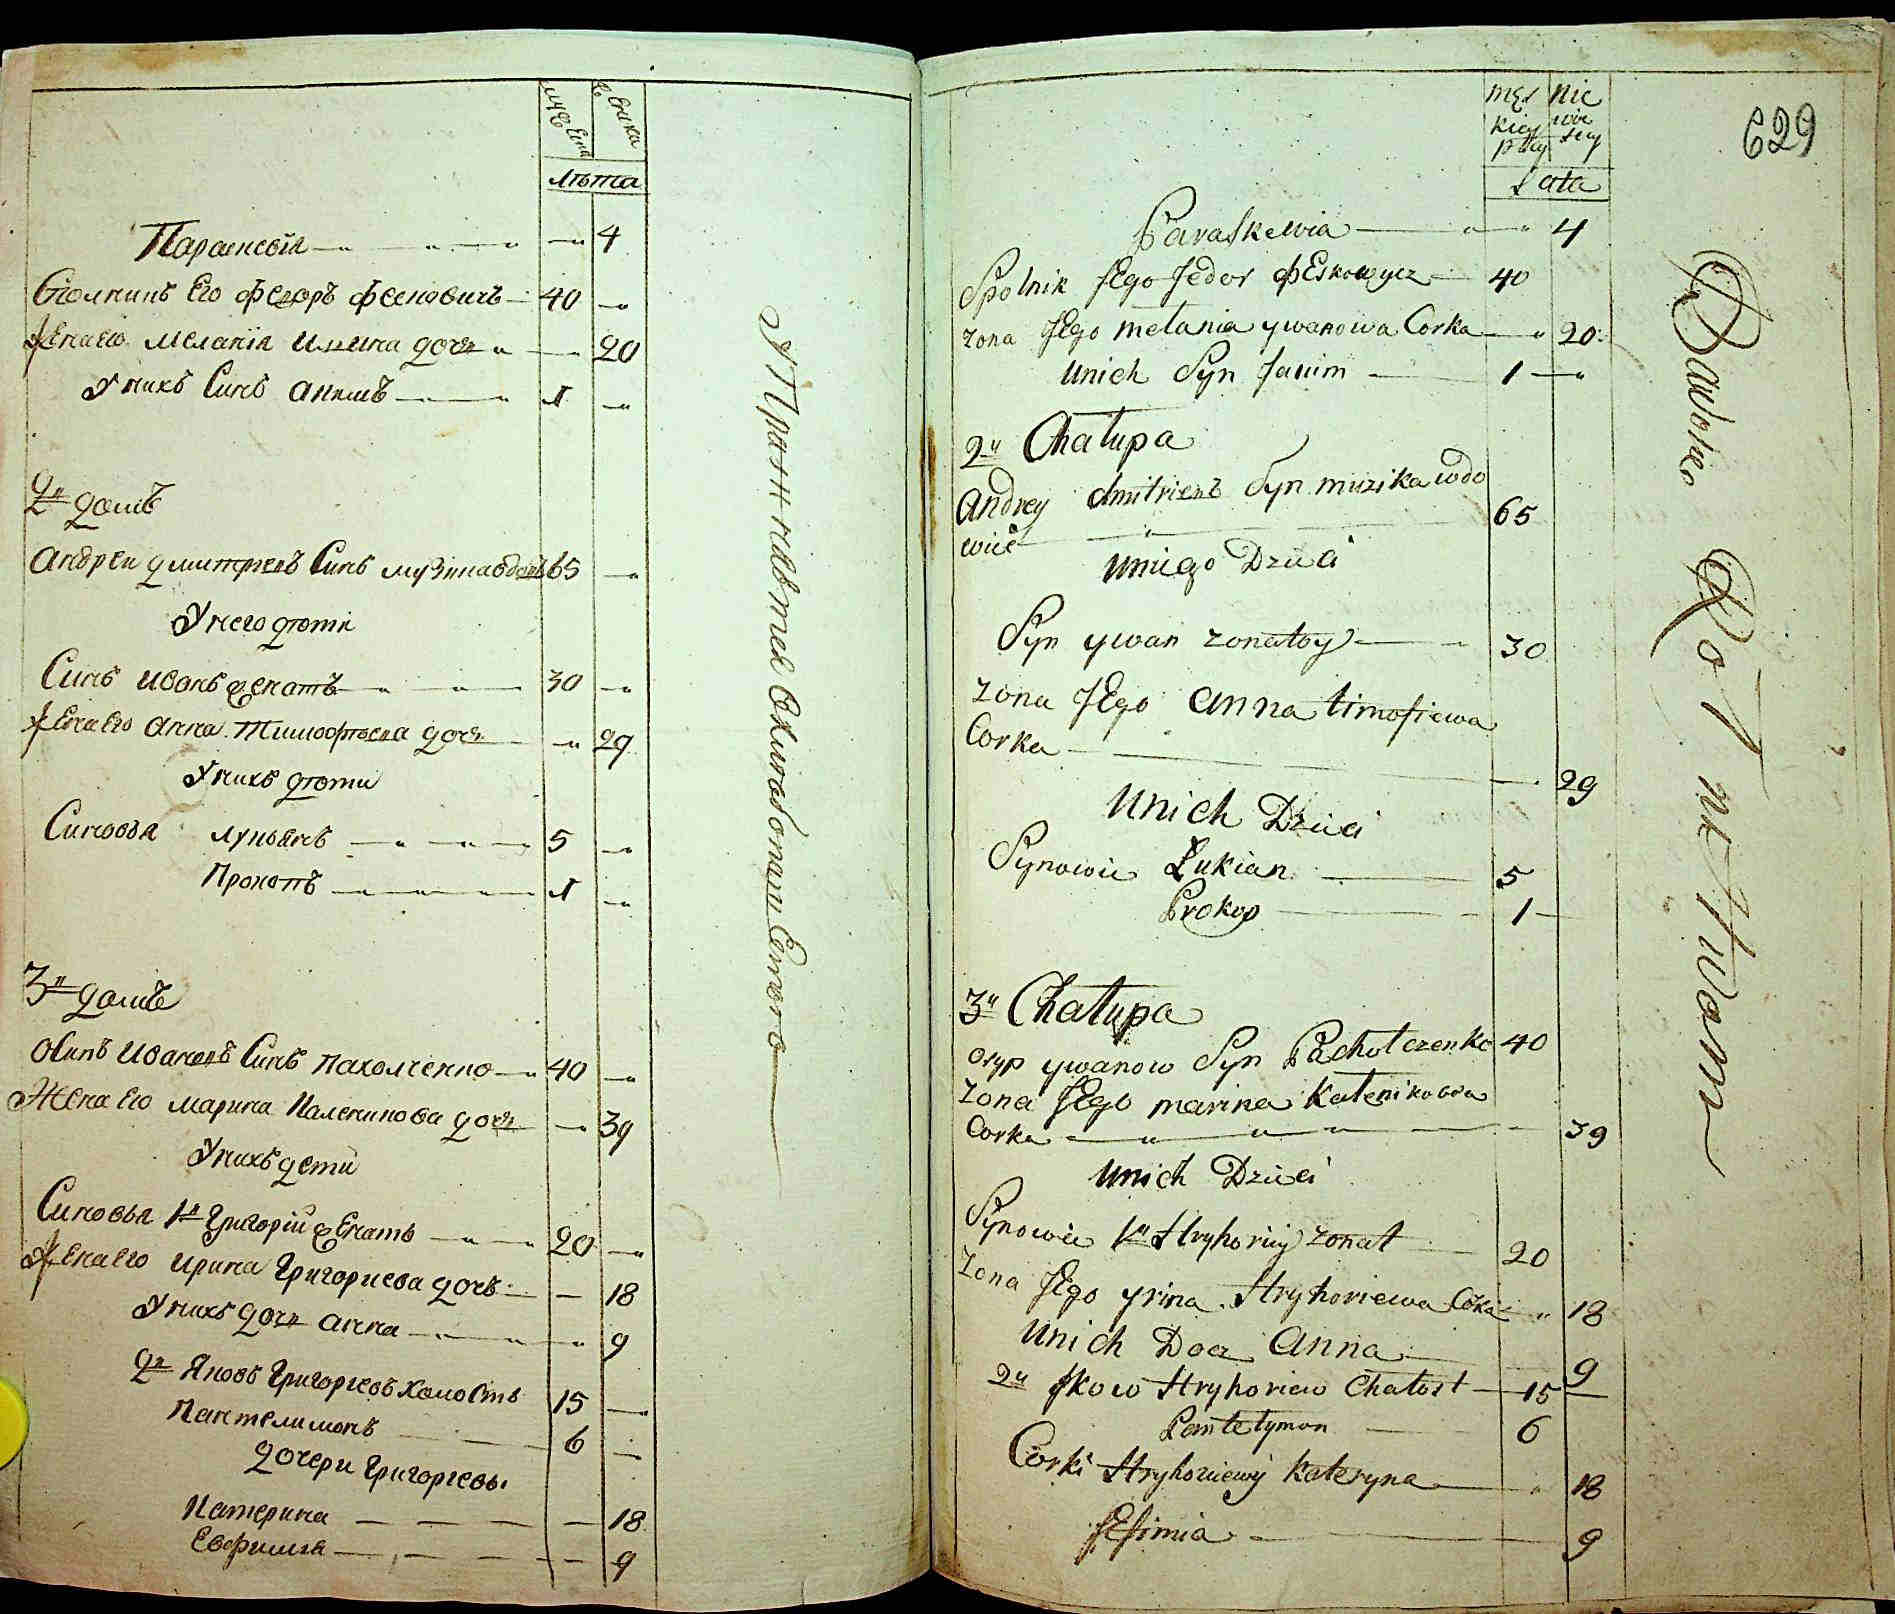 мужеска
женска
лѣта
Парасковія 4
Сполникъ Его Федоръ Фесковичъ 40
Жена его Меланія Ивана дочь 20
У нихъ Синъ Акимъ 1
2й домъ
Андреи Дмитриевъ Синъ музика вдовъ 65
У него дѣти
Синъ Иванъ женатъ 30
Жена его Анна Тимофѣева дочь 29
У нихъ дѣти
Синовья Лукьянъ 5
Прокопъ 1
3й домъ
Осипъ Ивановъ Синъ Пахолченко 40
Жена Его Марина Каленикова дочь 39
У нихъ дети
Синовья 1й Григорій женатъ 20
Жена его Ирина Григориева дочь 18
У нихъ дочь Анна 9
2й Яковъ Григориевъ холостъ 15
Пантелимонъ 6
дочери Григориевы
Катерина 18
Евфимія 9
męs kiey płcy
nie wie sciey
Lata
629
Paraskewia 4
Spolnik JEgo Fedor Feskowycz 40
Zona JEgo Melania ywanowa Corka 20
Unich Syn Jakim 1
2й Chałupa
Andrey dmitriewъ Syn muzika wdo 65
wiec
Uniego Dzieci
Syn ywan zonatoy 30
Zona JEgo Anna timofiewa
Corka 29
Unich Dzieci
Synowie Łukian 5
Prokop 1
3й Chałupa
Osyp ywanow Syn Pachołczenko 40
Zona JEgo marina Kalenikowa
Corka 39
Unich Dzieci
Synowie 1й Hryhoriy zonat 20
Zona JEgo yrina Hryhoriewa Corka 18
Unich Docz Anna 9
2й Jkow Hryhoriew Chałost 15
Pantelymon 6
Corki Hryhoriewy Kateryna 18
JEfimia 9